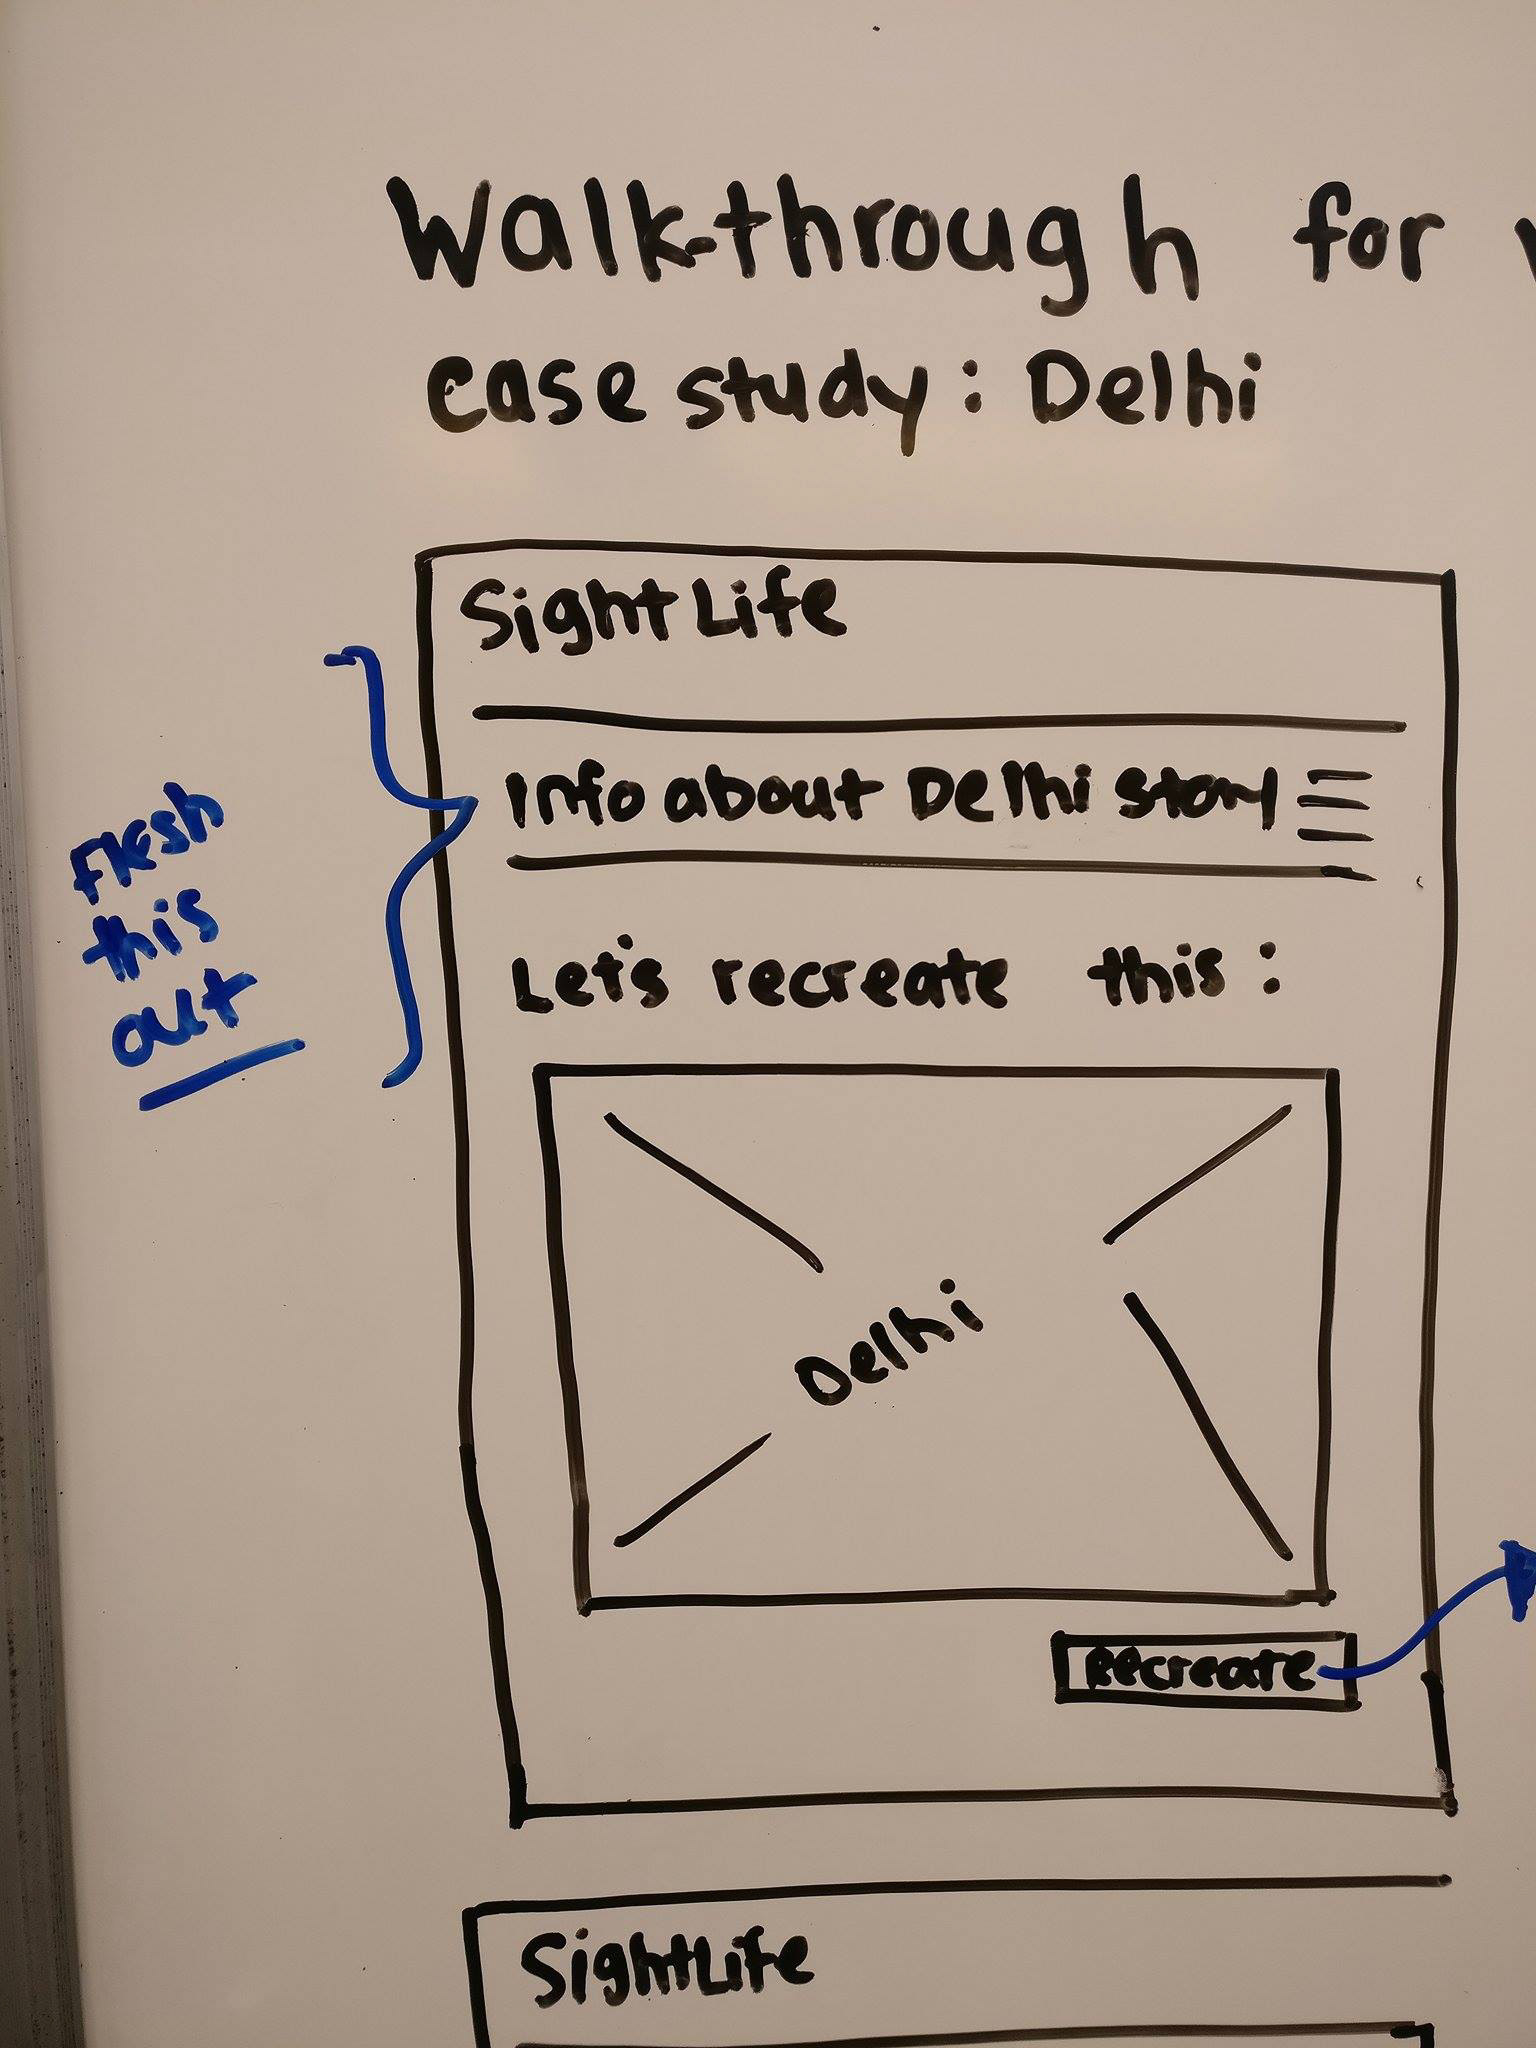 Walk-through for
case study: Delhi
SightLife
Info about Delhi story
Flesh
this
out
Let's recreate this:
Delhi
Recreate
SightLife